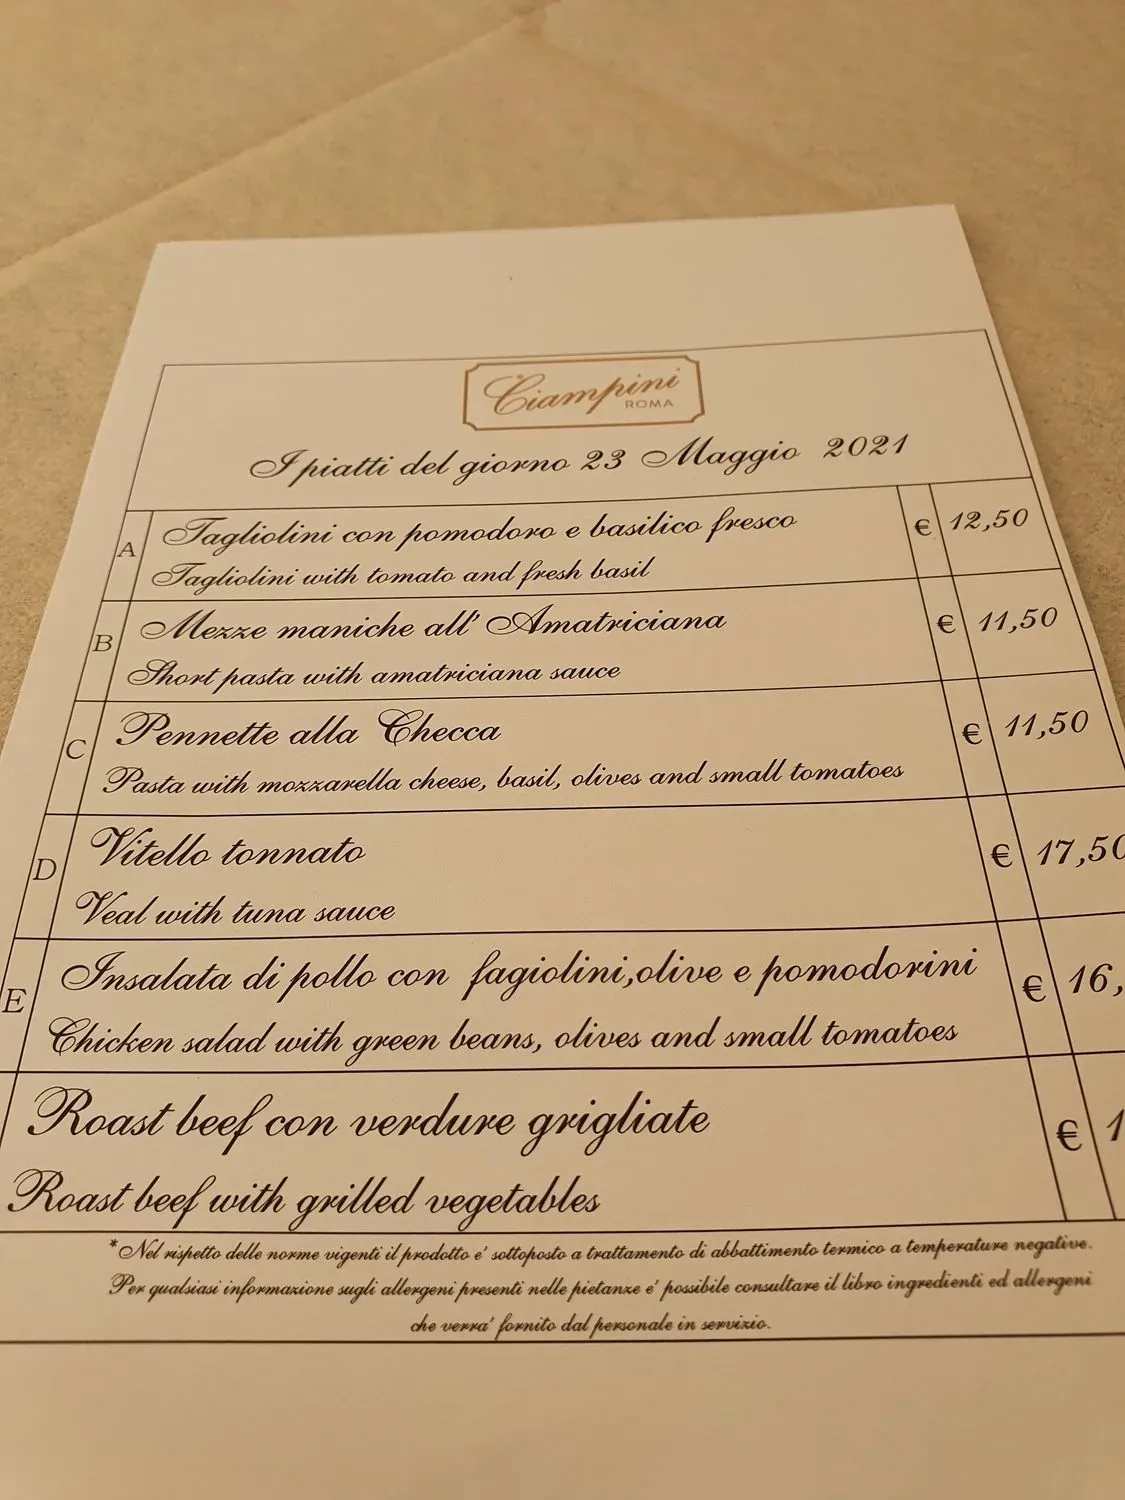 Ciampini
ROMA
I piatti del giorno 23 Maggio 2021
A
Tagliolini con pomodoro e basilico fresco
€ 12,50
Tagliolini with tomato and fresh basil
B
Mezze maniche all' Amatriciana
€ 11,50
Short pasta with amatriciana sauce
C
Pennette alla Checca
€ 11,50
Pasta with mozzarella cheese, basil, olives and small tomatoes
D
Vitello tonnato
€ 17,50
Veal with tuna sauce
E
Insalata di pollo con fagiolini,olive e pomodorini
€ 16,
Chicken salad with green beans, olives and small tomatoes
Roast beef con verdure grigliate
€ 1
Roast beef with grilled vegetables
*Nel rispetto delle norme vigenti il prodotto e' sottoposto a trattamento di abbattimento termico a temperature negative.
Per qualsiasi informazione sugli allergeni presenti nelle pietanze e' possibile consultare il libro ingredienti ed allergeni
che verra' fornito dal personale in servizio.